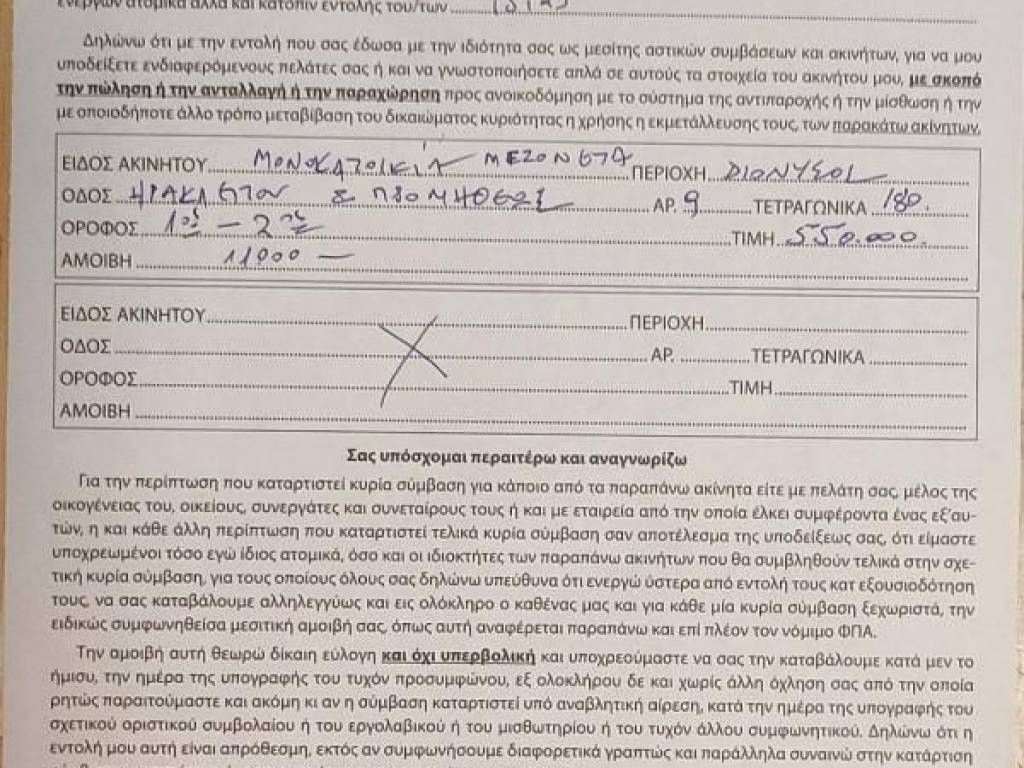 ενεργών ατομικά αλλά και κατόπιν εντολής του/των
Δηλώνω ότι με την εντολή που σας έδωσα με την ιδιότητα σας ως μεσίτης αστικών συμβάσεων και ακινήτων, για να μου
υποδείξετε ενδιαφερόμενους πελάτες σας ή και να γνωστοποιήσετε απλά σε αυτούς τα στοιχεία του ακινήτου μου, με σκοπό
την πώληση ή την ανταλλαγή ή την παραχώρηση προς ανοικοδόμηση με το σύστημα της αντιπαροχής ή την μίσθωση ή την
με οποιοδήποτε άλλο τρόπο μεταβίβαση του δικαιώματος κυριότητας η χρήσης η εκμετάλλευσης τους, των παρακάτω ακίνητων.
ΕΙΔΟΣ ΑΚΙΝΗΤΟΥ ΜΟΝΟΚΑΤΟΙΚΙΑ ΜΕΖΟΝΕΤΑ ΠΕΡΙΟΧΗ ΔΙΟΝΥΣΟΣ
ΟΔΟΣ & ΠΡΟΜΗΘΕΩΣ ΑΡ. 9 ΤΕΤΡΑΓΩΝΙΚΑ 180.
ΟΡΟΦΟΣ 1ος – 2ος ΤΙΜΗ 550.000.
ΑΜΟΙΒΗ 11000 —
ΕΙΔΟΣ ΑΚΙΝΗΤΟΥ ΠΕΡΙΟΧΗ
ΟΔΟΣ ΑΡ. ΤΕΤΡΑΓΩΝΙΚΑ
ΟΡΟΦΟΣ ΤΙΜΗ
ΑΜΟΙΒΗ
Σας υπόσχομαι περαιτέρω και αναγνωρίζω
Για την περίπτωση που καταρτιστεί κυρία σύμβαση για κάποιο από τα παραπάνω ακίνητα είτε με πελάτη σας, μέλος της
οικογένειας του, οικείους, συνεργάτες και συνεταίρους τους ή και με εταιρεία από την οποία έλκει συμφέροντα ένας εξ'αυ-
τών, η και κάθε άλλη περίπτωση που καταρτιστεί τελικά κυρία σύμβαση σαν αποτέλεσμα της υποδείξεως σας, ότι είμαστε
υποχρεωμένοι τόσο εγώ ίδιος ατομικά, όσο και οι ιδιοκτήτες των παραπάνω ακινήτων που θα συμβληθούν τελικά στην σχε-
τική κυρία σύμβαση, για τους οποίους όλους σας δηλώνω υπεύθυνα ότι ενεργώ ύστερα από εντολή τους κατ εξουσιοδότηση
τους, να σας καταβάλουμε αλληλεγγύως και εις ολόκληρο ο καθένας μας και για κάθε μία κυρία σύμβαση ξεχωριστά, την
ειδικώς συμφωνηθείσα μεσιτική αμοιβή σας, όπως αυτή αναφέρεται παραπάνω και επί πλέον τον νόμιμο ΦΠΑ.
Την αμοιβή αυτή θεωρώ δίκαιη εύλογη και όχι υπερβολική και υποχρεούμαστε να σας την καταβάλουμε κατά μεν το
ήμισυ, την ημέρα της υπογραφής του τυχόν προσυμφώνου, εξ ολοκλήρου δε και χωρίς άλλη όχληση σας από την οποία
ρητώς παραιτούμαστε και ακόμη κι αν η σύμβαση καταρτιστεί υπό αναβλητική αίρεση, κατά την ημέρα της υπογραφής του
σχετικού οριστικού συμβολαίου ή του εργολαβικού ή του μισθωτηρίου ή του τυχόν άλλου συμφωνητικού. Δηλώνω ότι η
εντολή μου αυτή είναι απρόθεσμη, εκτός αν συμφωνήσουμε διαφορετικά γραπτώς και παράλληλα συναινώ στην κατάρτιση